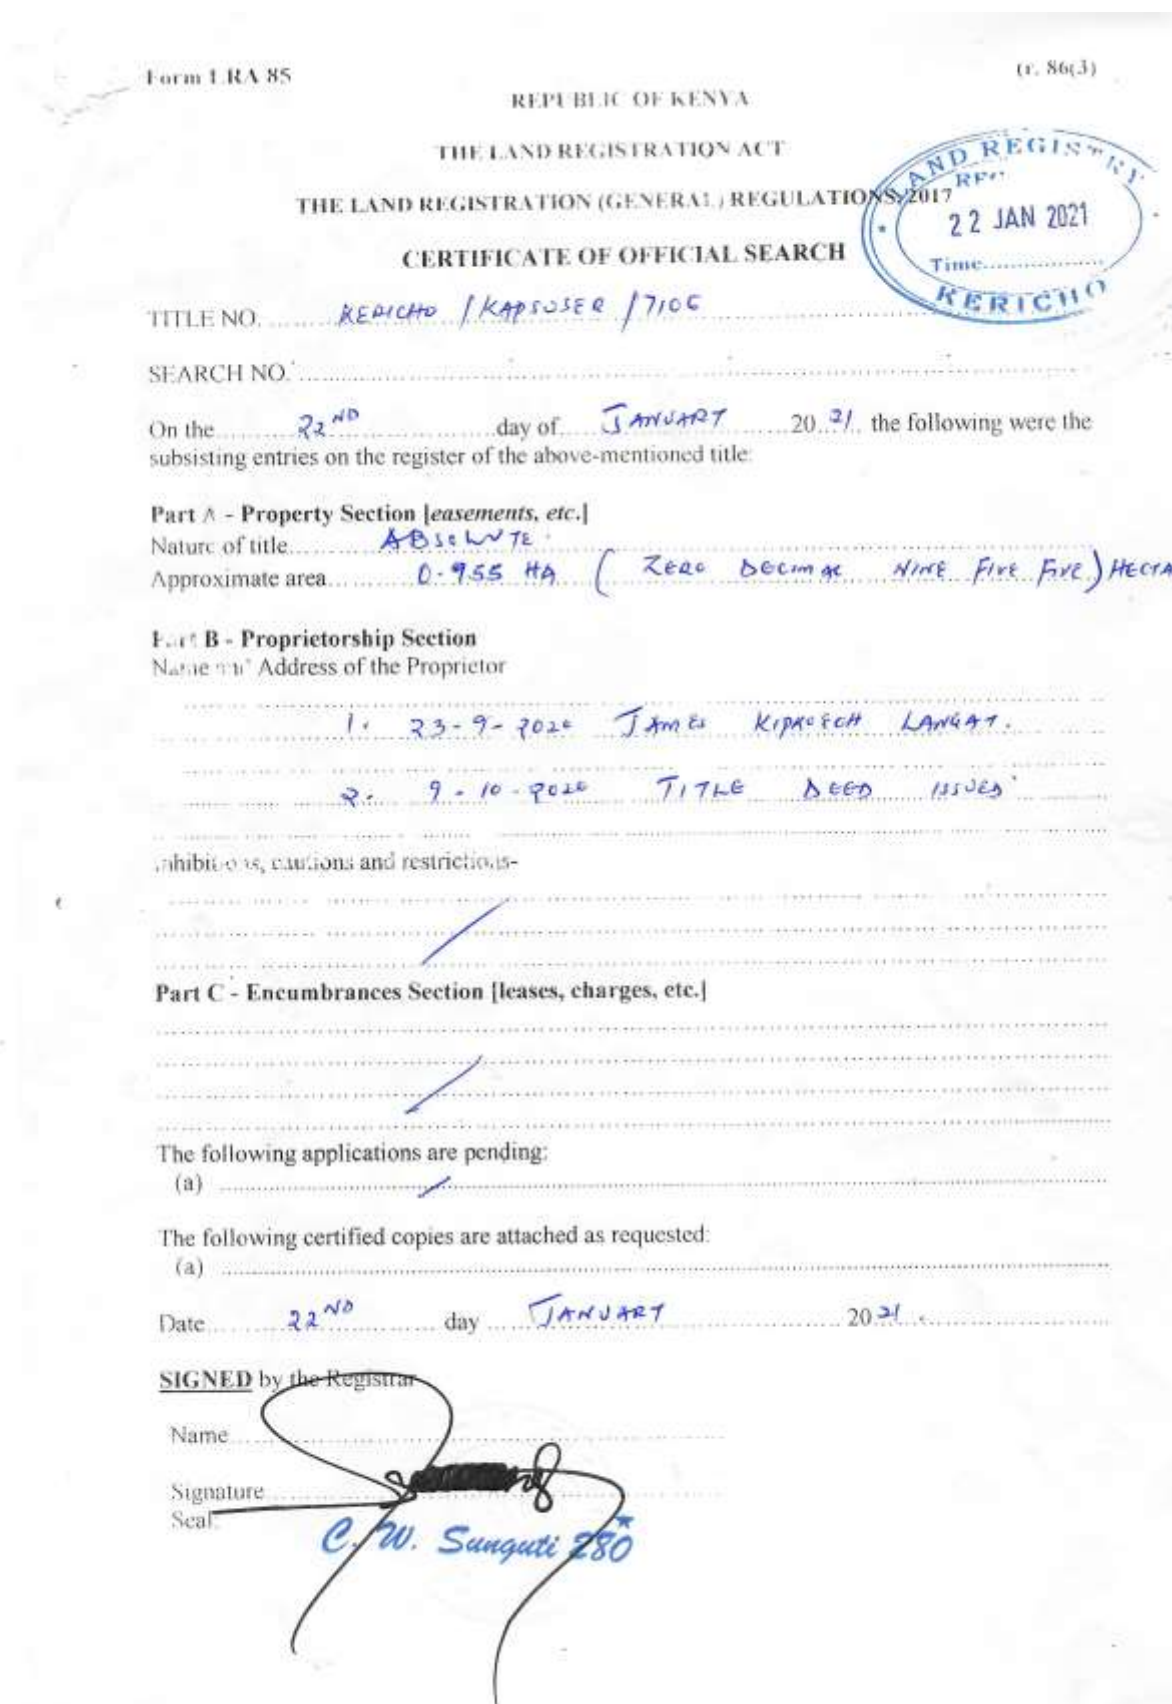 Form LRA 85
(r. 86(3)
REPUBLIC OF KENYA
THE LAND REGISTRATION ACT
THE LAND REGISTRATION (GENERAL) REGULATIONS, 2017
LAND REGISTRY
22 JAN 2021
Time
KERICHO
CERTIFICATE OF OFFICIAL SEARCH
TITLE NO. KERICHO / KAPSUSER / 7106
SEARCH NO.
On the 22ND day of JANUARY 2021 the following were the
subsisting entries on the register of the above-mentioned title:
Part A - Property Section [easements, etc.]
Nature of title ABSOLUTE
Approximate area 0.955 HA ( ZERO DECIMAL NINE FIVE FIVE ) HECTA
Part B - Proprietorship Section
Name and Address of the Proprietor
1. 23-9-2020 JAMES KIPROTICH LANGAT.
2. 9-10-2020 TITLE DEED ISSUED
inhibitions, cautions and restrictions-
Part C - Encumbrances Section [leases, charges, etc.]
The following applications are pending:
(a)
The following certified copies are attached as requested:
(a)
Date 22ND day JANUARY 2021.
SIGNED by the Registrar
Name
Signature
Seal:
C. W. Sunguti 280